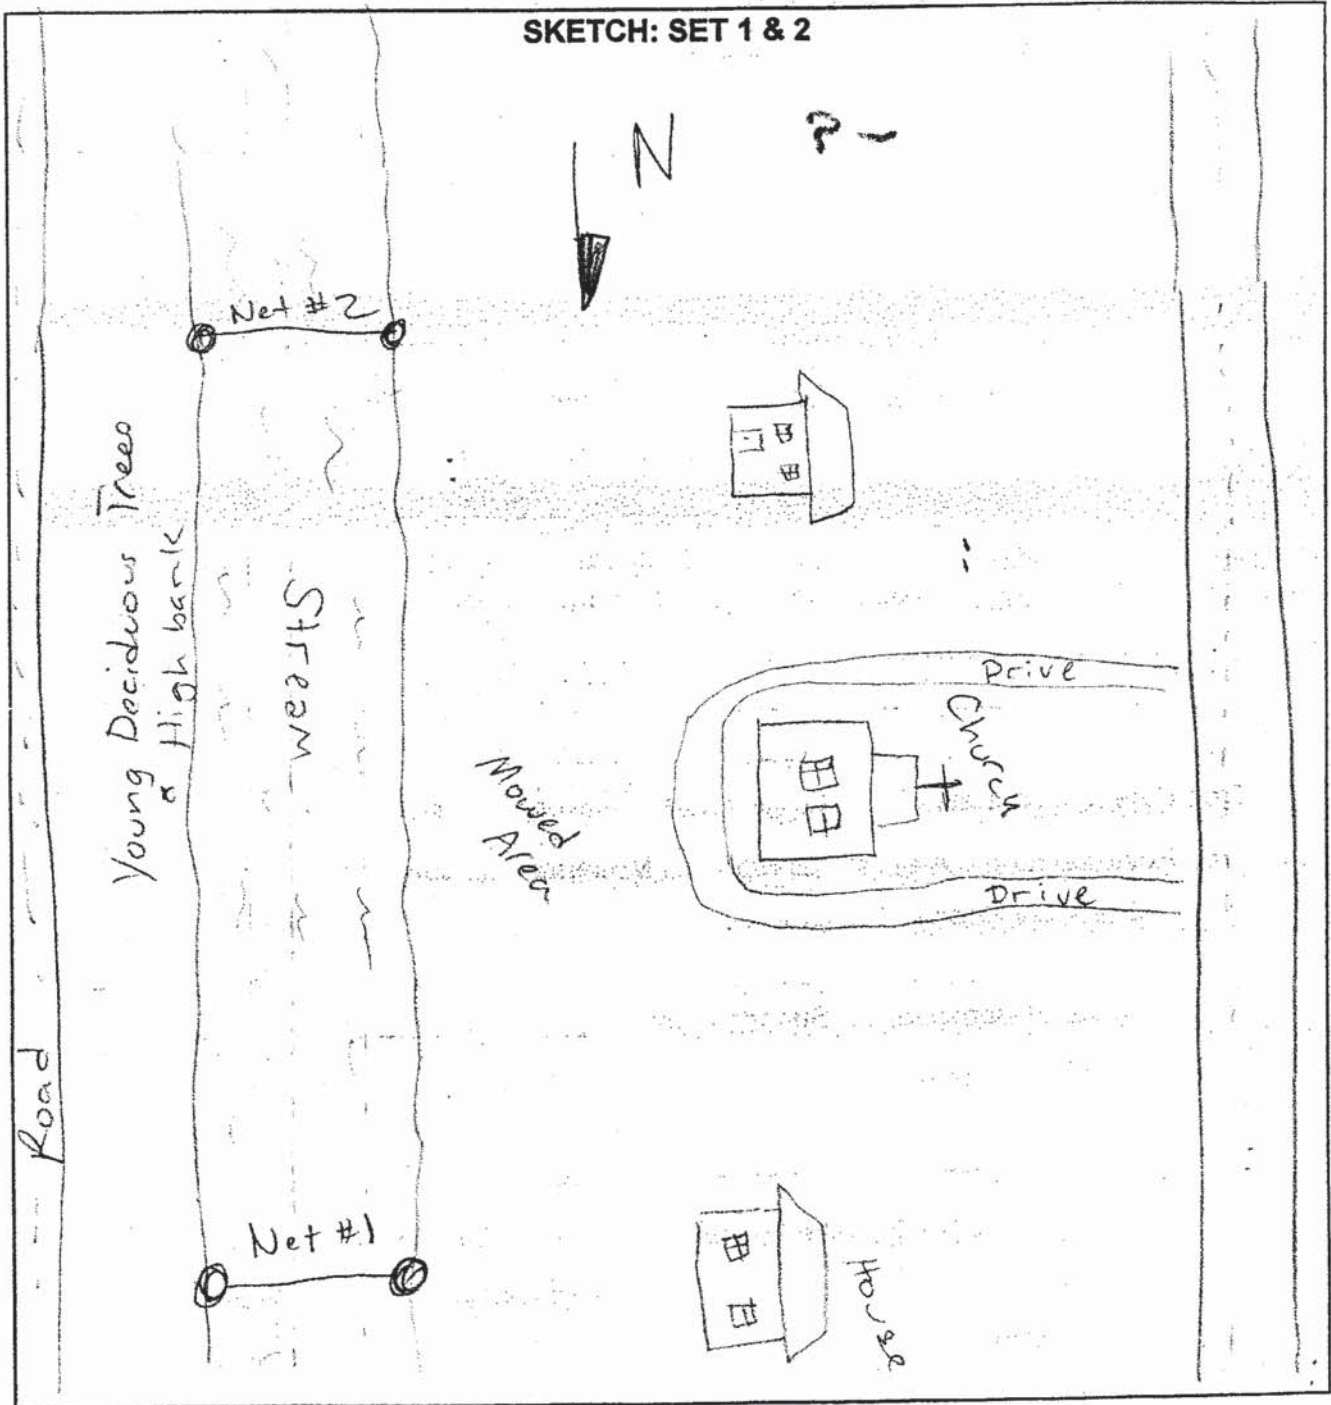 SKETCH: SET 1 & 2
N
Net #2
Young Deciduous Trees
& High bank
Stream
Mowed
Area
Drive
Church
Drive
Road
Net #1
House